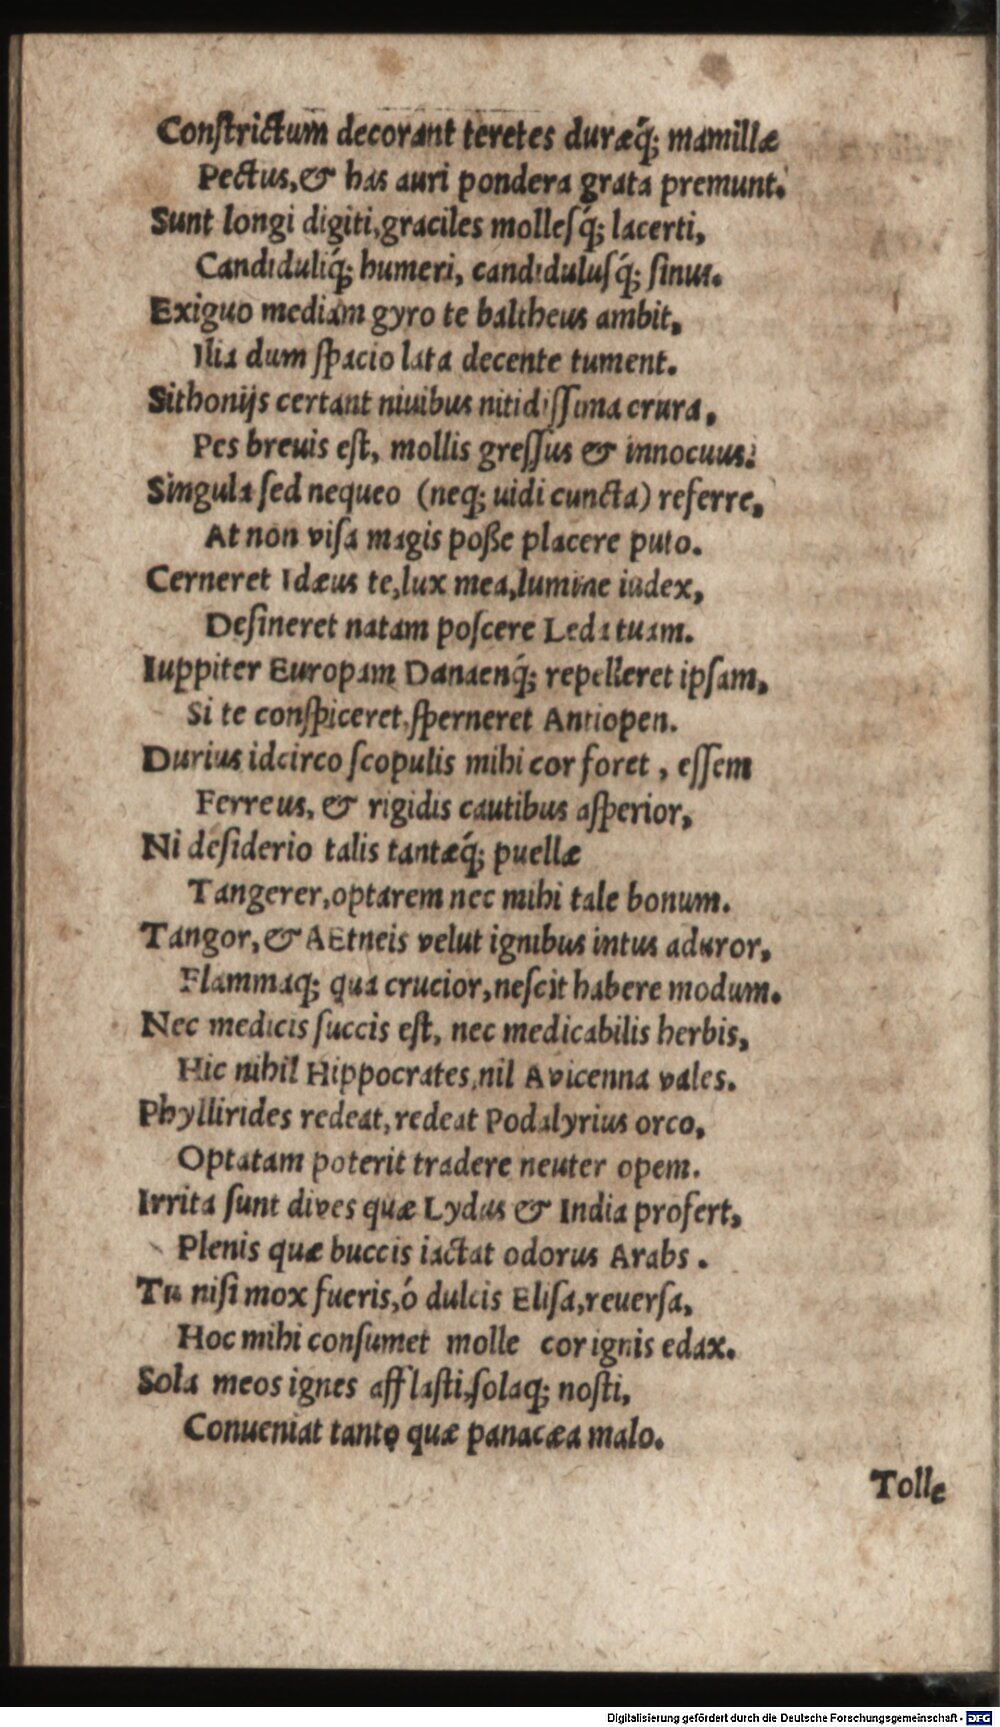 Conſtrictum decorant teretes duræq́; mamillæ
Pectus, & has auri pondera grata premunt.
Sunt longi digiti, graciles molleſq́; lacerti,
Candiduliq́; humeri, candiduluſq́; ſinus.
Exiguo mediam gyro te baltheus ambit,
Ilia dum ſpacio lata decente tument.
Sithonijs certant niuibus nitidiſſima crura,
Pes breuis eſt, mollis greſſus & innocuus.
Singula ſed nequeo (neq; uidi cuncta) referre,
At non viſa magis poſſe placere puto.
Cerneret Idæus te, lux mea, lumine iudex,
Deſineret natam poſcere Leda tuam.
Iuppiter Europam Danaenq́; repelleret ipſam,
Si te conſpiceret, ſperneret Antiopen.
Durius idcirco ſcopulis mihi cor foret, eſſem
Ferreus, & rigidis cautibus aſperior,
Ni deſiderio talis tantæq́; puellæ
Tangerer, optarem nec mihi tale bonum.
Tangor, & AEtneis velut ignibus intus aduror,
Flammaq; qua crucior, neſcit habere modum.
Nec medicis ſuccis eſt, nec medicabilis herbis,
Hic nihil Hippocrates, nil Avicenna vales.
Phyllirides redeat, redeat Podalyrius orco,
Optatam poterit tradere neuter opem.
Irrita ſunt dives quæ Lydus & India profert,
Plenis quæ buccis iactat odorus Arabs.
Tu niſi mox fueris, ó dulcis Eliſa, reuerſa,
Hoc mihi conſumet molle cor ignis edax.
Sola meos ignes afflaſti, ſolaq; noſti,
Conueniat tanto quæ panacæa malo.
Tolle
Digitalisierung gefördert durch die Deutsche Forschungsgemeinschaft - DFG